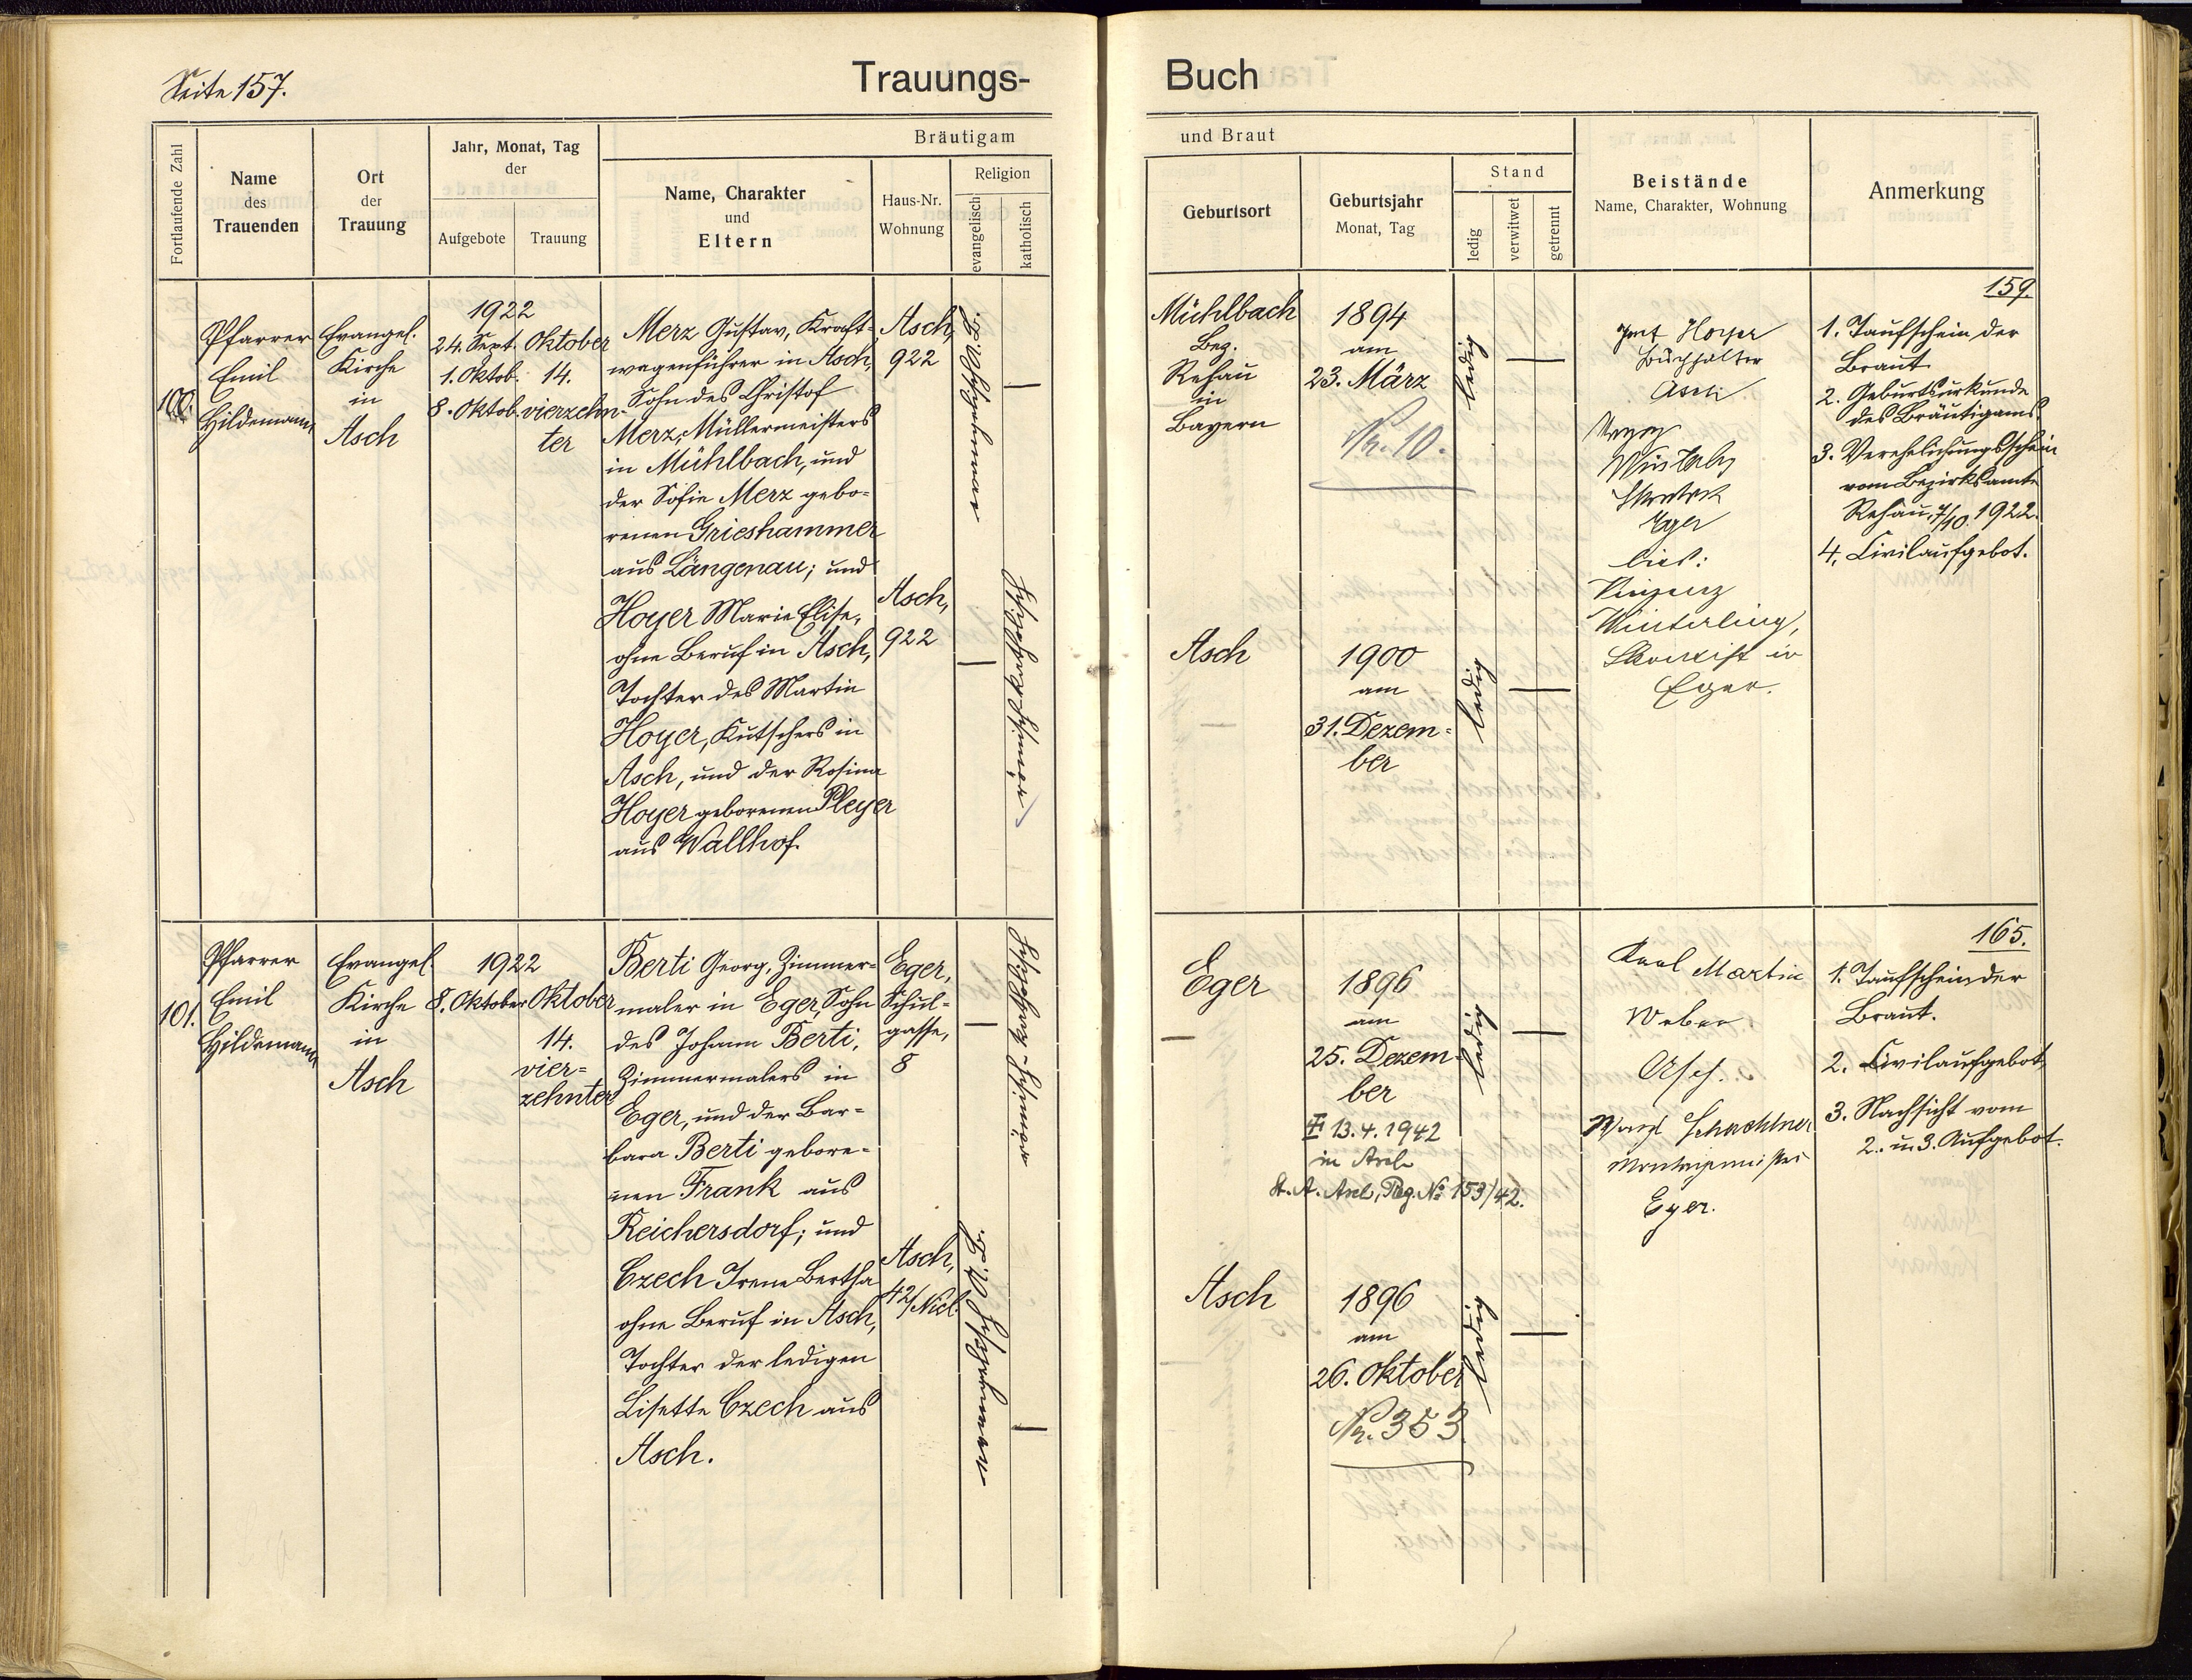 Seite 157.
Trauungs-
Buch
Fortlaufende Zahl
Name
des
Trauenden
Ort
der
Trauung
Jahr, Monat, Tag
der
Aufgebote
Trauung
Bräutigam
Name, Charakter
und
Eltern
Haus-Nr.
Wohnung
Religion
evangelisch
katholisch
und Braut
Geburtsort
Geburtsjahr
Monat, Tag
Stand
ledig
verwitwet
getrennt
Beistände
Name, Charakter, Wohnung
Anmerkung
100.
Pfarrer
Emil
Hildemann
Evangel.
Kirche
in
Asch
1922
24. Sept.
1. Oktob.
8. Oktob.
Oktober
14.
vierzehn-
ter
Merz Gustav, Kraft-
wagenführer in Asch,
Sohn des Christof
Merz, Müllermeisters
in Mühlbach, und
der Sofie Merz gebo-
renen Grieshammer
aus Längenau; und
Hoyer Marie Elise,
ohne Beruf in Asch,
Tochter des Martin
Hoyer, Kutschers in
Asch, und der Rosina
Hoyer geborenen Pleyer
aus Wallhof.
Asch,
922
Asch,
922
römischkatholisch
Mühlbach
Bez.
Rehau
in
Bayern
1894
am
23. März
Nr. 10.
ledig
Asch
1900
am
31. Dezem-
ber
ledig
Hoyer
Buchhalter
Asch
Eger
lies:
Vinzenz
Winterling,
in
Eger.
159.
1. Taufschein der
Braut
2. Geburtsurkunde
des Bräutigams
3. Verehelichungsschein
vom Bezirksamte
Rehau, 7/10. 1922.
4. Civilaufgebot.
101.
Pfarrer
Emil
Hildemann
Evangel.
Kirche
in
Asch
1922
8. Oktober
Oktober
14.
vier-
zehnter
Berti Georg, Zimmer-
maler in Eger, Sohn
des Johann Berti,
Zimmermalers in
Eger, und der Bar-
bara Berti gebore-
nen Frank aus
Reichersdorf; und
Czech Irene Bertha
ohne Beruf in Asch,
Tochter der ledigen
Lisette Czech aus
Asch.
Eger,
Schul-
gasse,
8
Asch,
42/Nicl.
römisch-katholisch
Eger
1896
am
25. Dezem-
ber
13.4.1942
in Asch
St. A. Asch, Reg. No 153/42.
ledig
Asch
1896
am
26. Oktober
Nr. 353
ledig
Karl Martin
Weber
Asch.
Schachtner
Eger.
165.
1. Taufschein der
Braut.
2. Civilaufgebot
3. Nachsicht vom
2. u. 3. Aufgebot.